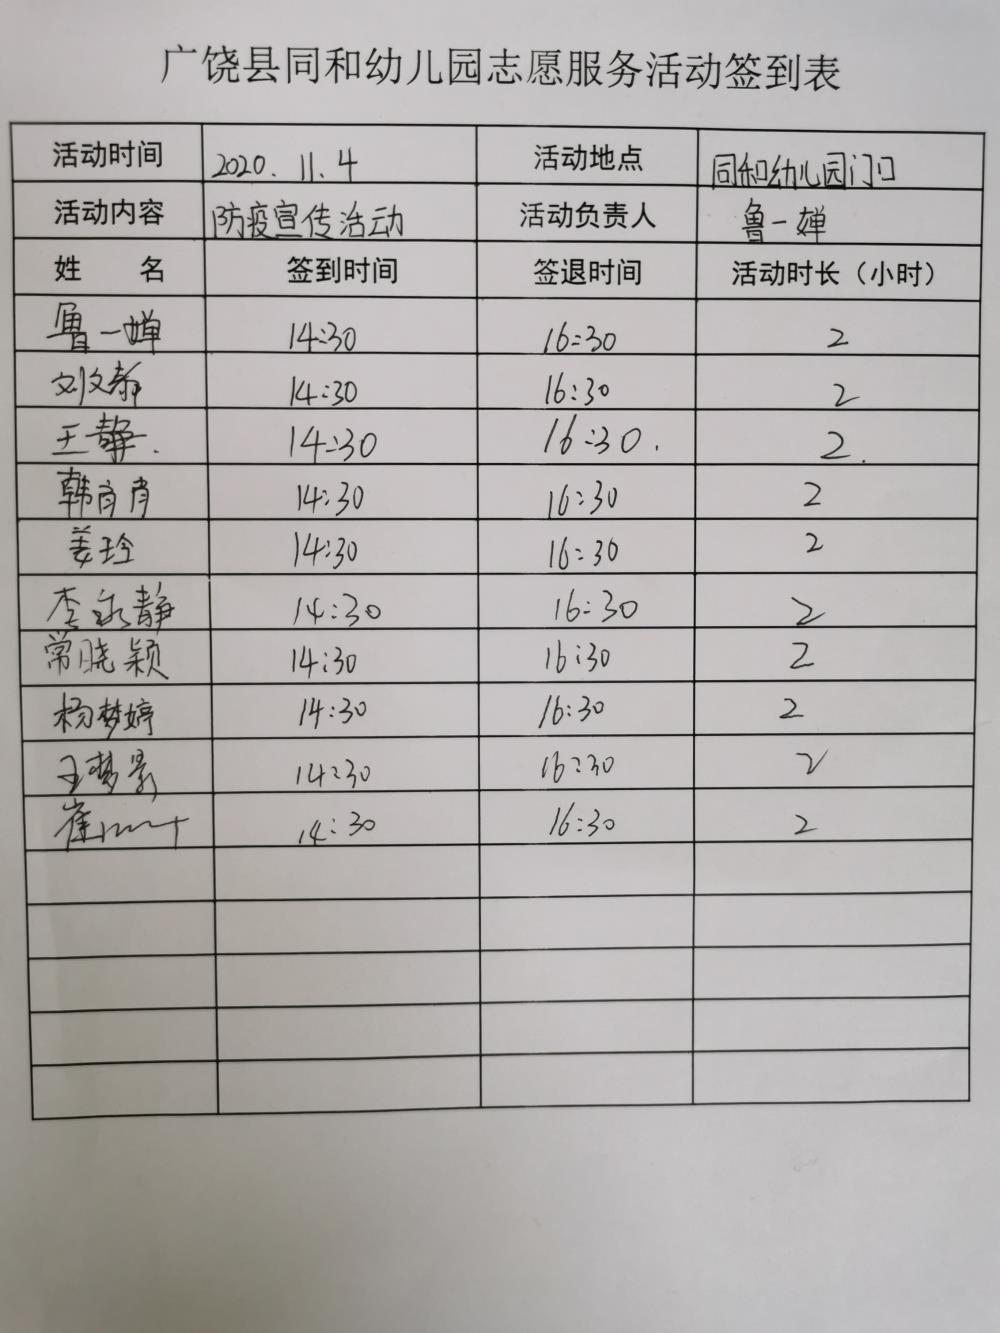 广饶县同和幼儿园志愿服务活动签到表
活动时间 2020.11.4 活动地点 同和幼儿园门口
活动内容 防疫宣传活动 活动负责人 鲁一婵
姓 名 签到时间 签退时间 活动时长（小时）
鲁一婵 14:30 16:30 2
刘文静 14:30 16:30 2
王静. 14:30 16:30. 2.
韩肖肖 14:30 16:30 2
姜玲 14:30 16:30 2
李永静 14:30 16:30 2
常晓颖 14:30 16:30 2
杨梦婷 14:30 16:30 2
王梦景 14:30 16:30 2
崔 14:30 16:30 2